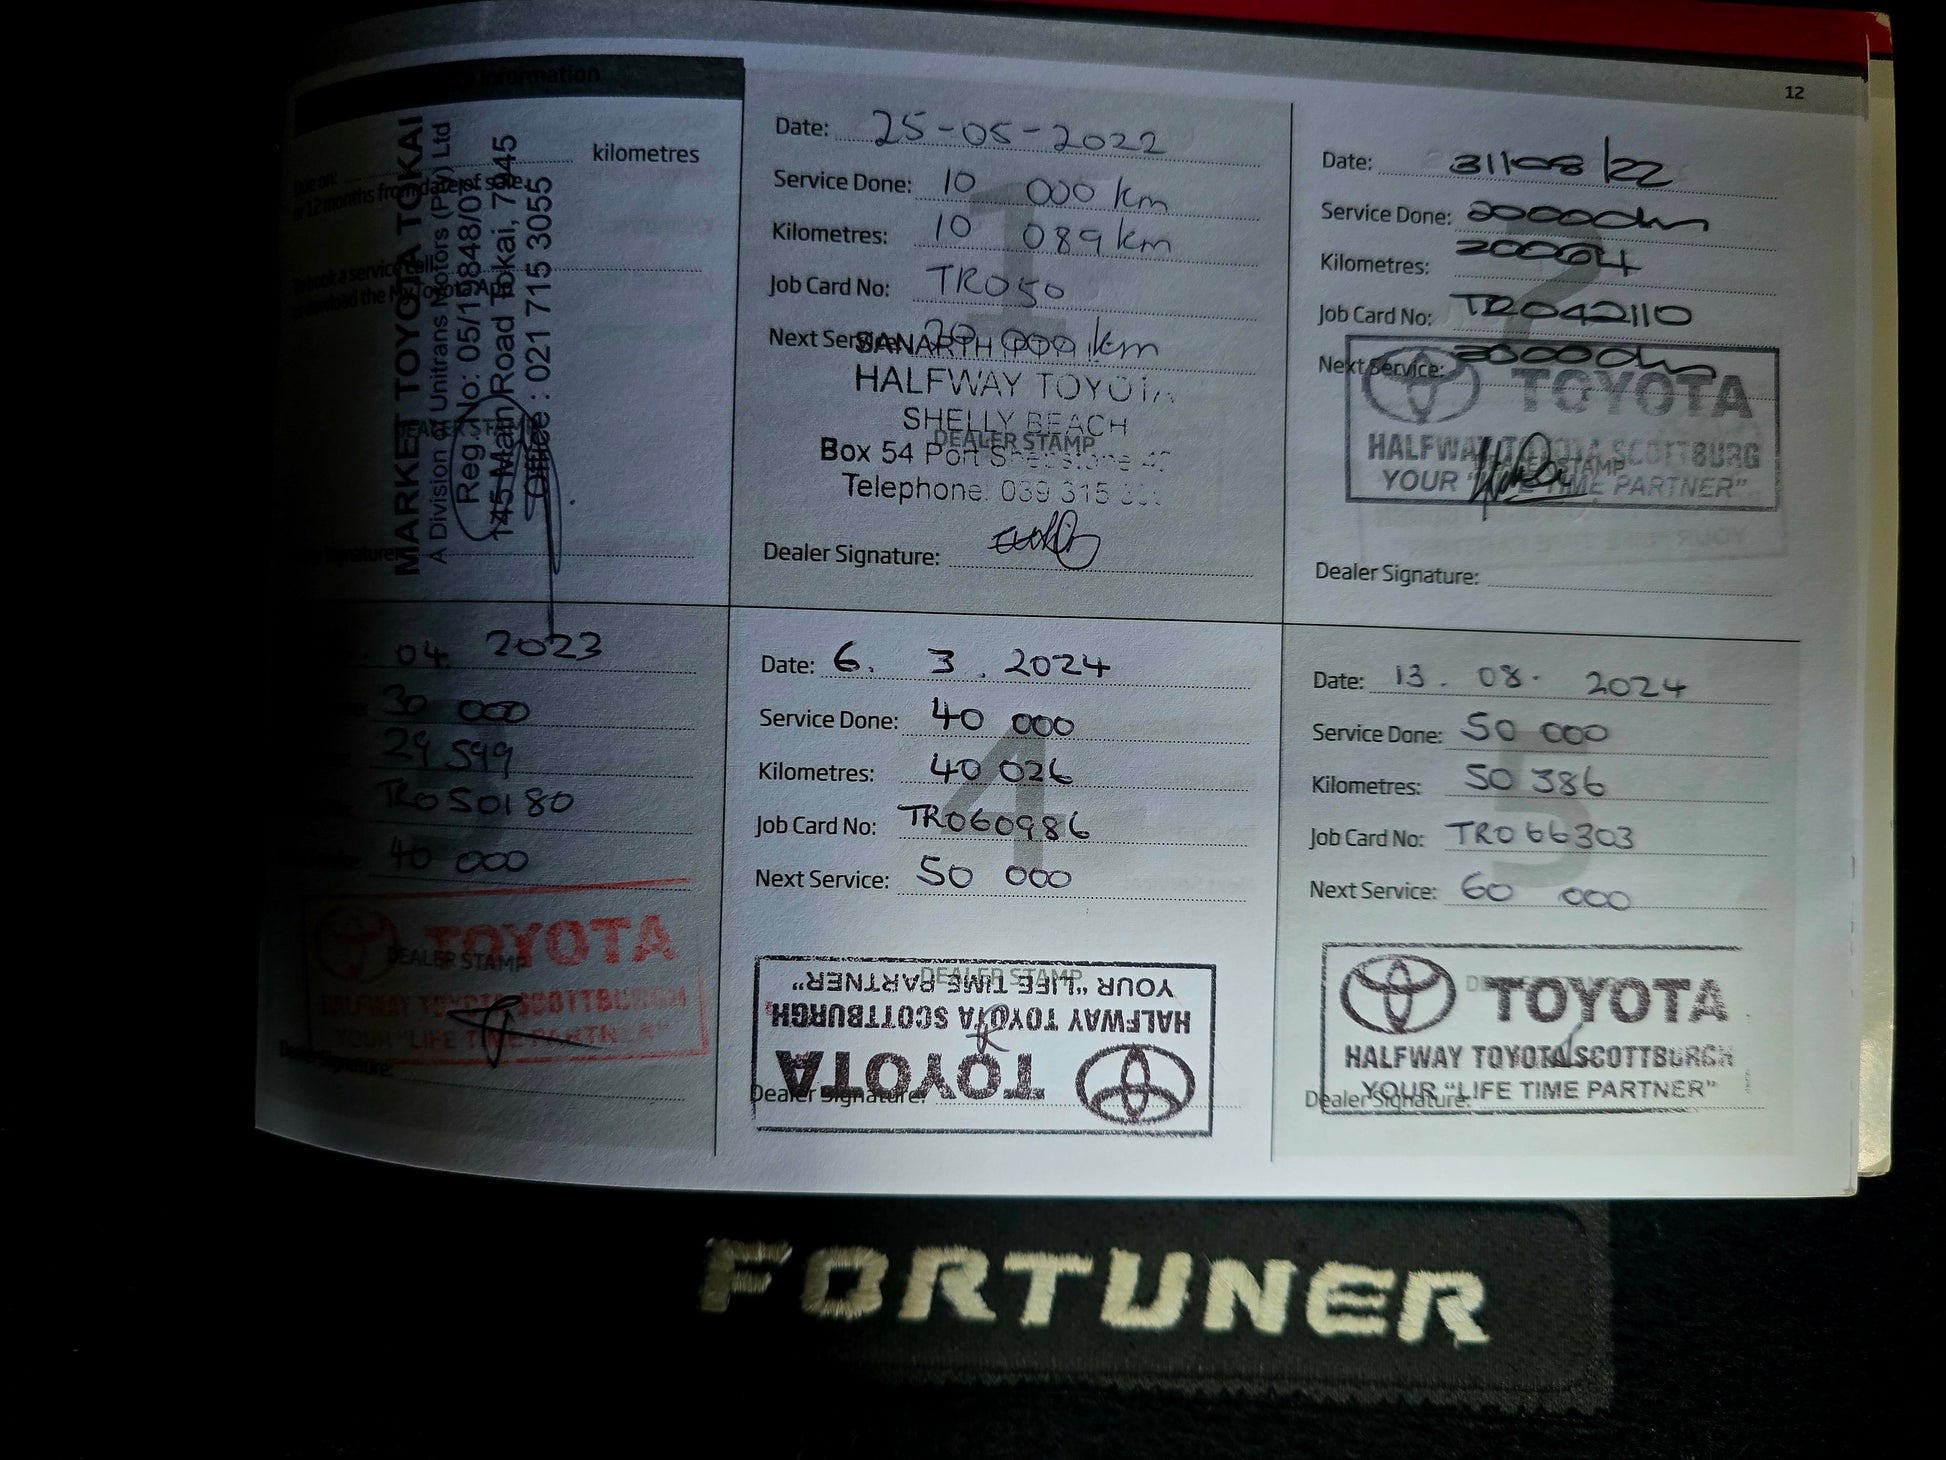 12
Information
Due on: kilometres
or 12 months from date of sale.
To book a service call:
or download the My Toyota App
DEALER STAMP
MARKET TOYOTA TOKAI
A Division of Unitrans Motors (Pty) Ltd
Reg. No: 05/19848/07
145 Main Road Tokai, 7945
Office : 021 715 3055
Signature:
Date: 25-05-2022
Service Done: 10 000 km
Kilometres: 10 089 km
Job Card No: TR050
Next Service: 20 000 km
HALFWAY TOYOTA
SHELLY BEACH
DEALER STAMP
Box 54 Port
Telephone: 039 315
Dealer Signature:
Date: 31/08/22
Service Done:
Kilometres: 20064
Job Card No: TR042110
Next Service:
TOYOTA
HALFWAY TOYOTA SCOTTBURG
YOUR "LIFE TIME PARTNER"
Dealer Signature:
04 2023
30 000
29 599
TR050180
40 000
TOYOTA
DEALER STAMP
HALFWAY TOYOTA SCOTTBURGH
YOUR "LIFE TIME PARTNER"
Dealer Signature:
Date: 6. 3. 2024
Service Done: 40 000
Kilometres: 40 026
Job Card No: TR060986
Next Service: 50 000
DEALER STAMP
TOYOTA
HALFWAY TOYOTA SCOTTBURGH
YOUR "LIFE TIME PARTNER"
Dealer Signature:
Date: 13. 08. 2024
Service Done: 50 000
Kilometres: 50 386
Job Card No: TR066303
Next Service: 60 000
TOYOTA
HALFWAY TOYOTA SCOTTBURGH
YOUR "LIFE TIME PARTNER"
Dealer Signature:
FORTUNER